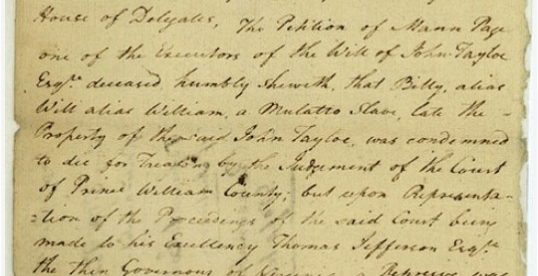 House of Delegates, The Petition of Mann Page
one of the Executors of the Will of John Tayloe
Esqr. deceased, humbly sheweth, that Billy, alias
Will alias William, a Mulatto Slave, late the
Property of the said John Tayloe, was condemned
to die for Treason by the Judgment of the Court
of Prince William County, but upon Representa-
-tion of the Proceedings of the said Court being
made to his Excellency Thomas Jefferson Esqr.
the then Governour of Virginia, a Reprieve was